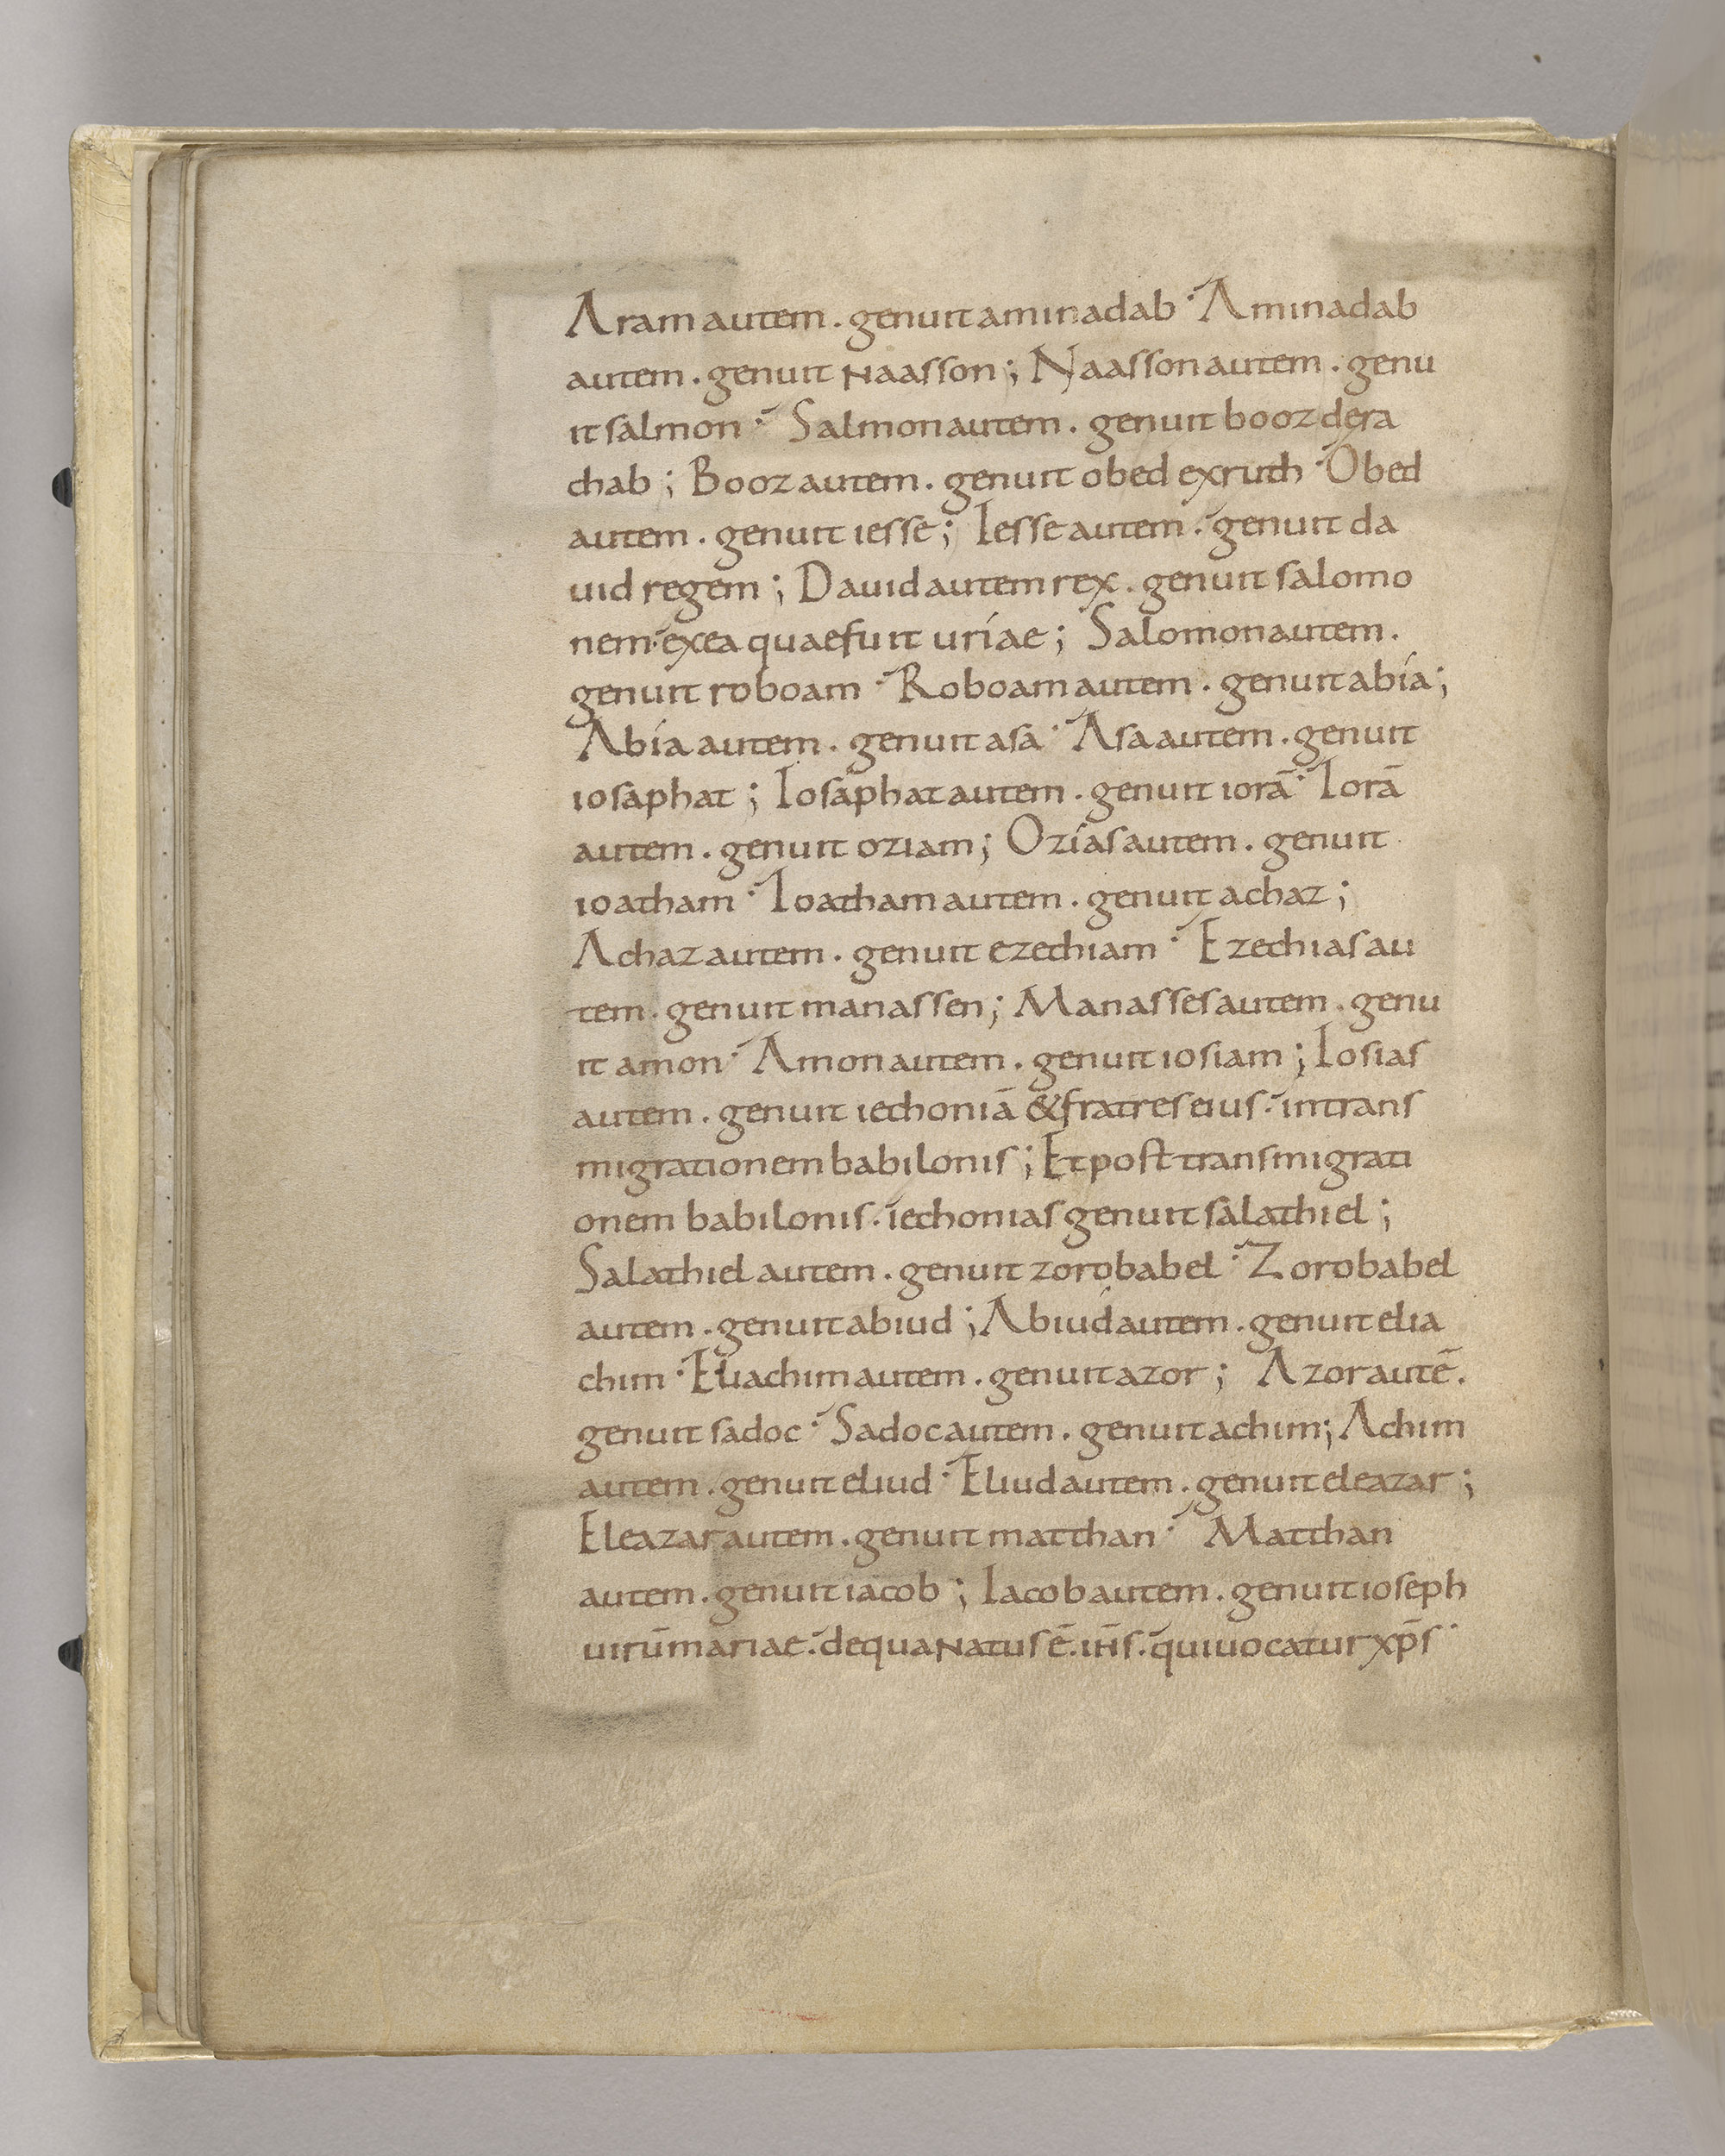 Aram autem . genuit aminadab · Aminadab
autem . genuit Naasson ; Naasson autem . genu
it salmon · Salmon autem . genuit booz de ra
chab ; Booz autem . genuit obed ex ruth · Obed
autem . genuit iesse ; Iesse autem . genuit da
uid regem ; Dauid autem rex . genuit salomo
nem · ex ea quae fuit uriae ; Salomon autem .
genuit roboam · Roboam autem . genuit abia ;
Abia autem . genuit asa · Asa autem . genuit
iosaphat ; Iosaphat autem . genuit iorā · Iorā
autem . genuit oziam ; Ozias autem . genuit
ioatham · Ioatham autem . genuit achaz ;
Achaz autem . genuit ezechiam · Ezechias au
tem . genuit manassen ; Manasses autem . genu
it amon · Amon autem . genuit iosiam ; Iosias
autem . genuit iechoniā & fratres eius · in trans
migrationem babilonis ; Et post transmigrati
onem babilonis · iechonias genuit salathiel ;
Salathiel autem . genuit zorobabel · Zorobabel
autem . genuit abiud ; Abiud autem . genuit elia
chim · Eliachim autem . genuit azor ; Azor autē .
genuit sadoc · Sadoc autem . genuit achim ; Achim
autem . genuit eliud · Eliud autem . genuit eleazar ;
Eleazar autem . genuit matthan · Matthan
autem . genuit iacob ; Iacob autem . genuit ioseph
uirū mariae · de qua Natus ē · ih̄s · qui uocatur xp̄s ·